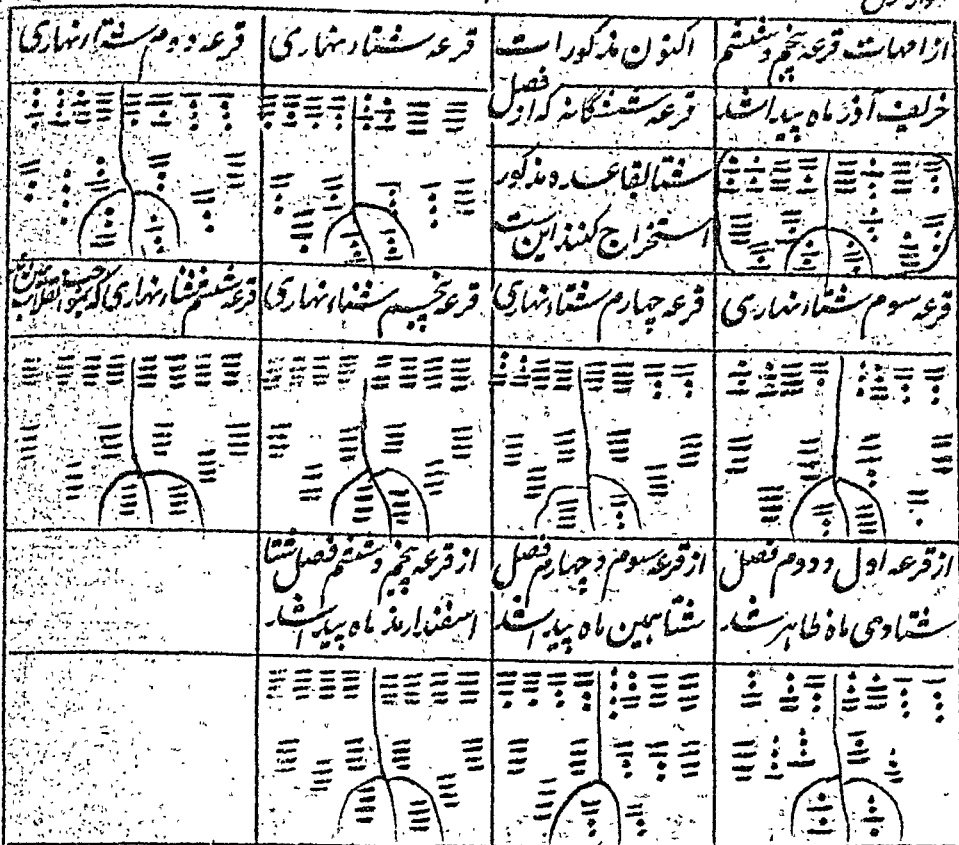 از امهات قرعه پنجم و ششم
خریف آذر ماه پیدا شد
اکنون مذکور است
قرعه ششگانه که از فصل
شتا بقاعده مذکور
استخراج کنند این است
قرعه شتاء نهاری
قرعه دوم شتاء نهاری
قرعه سوم شتاء نهاری
قرعه چهارم شتاء نهاری
قرعه پنجم شتاء نهاری
قرعه ششم شتاء نهاری که
از قرعه اول و دوم فصل
شتا دی ماه ظاهر شد
از قرعه سوم و چهارم فصل
شتا بهمن ماه پیدا شد
از قرعه پنجم و ششم فصل شتا
اسفندارمذ ماه پیدا شد